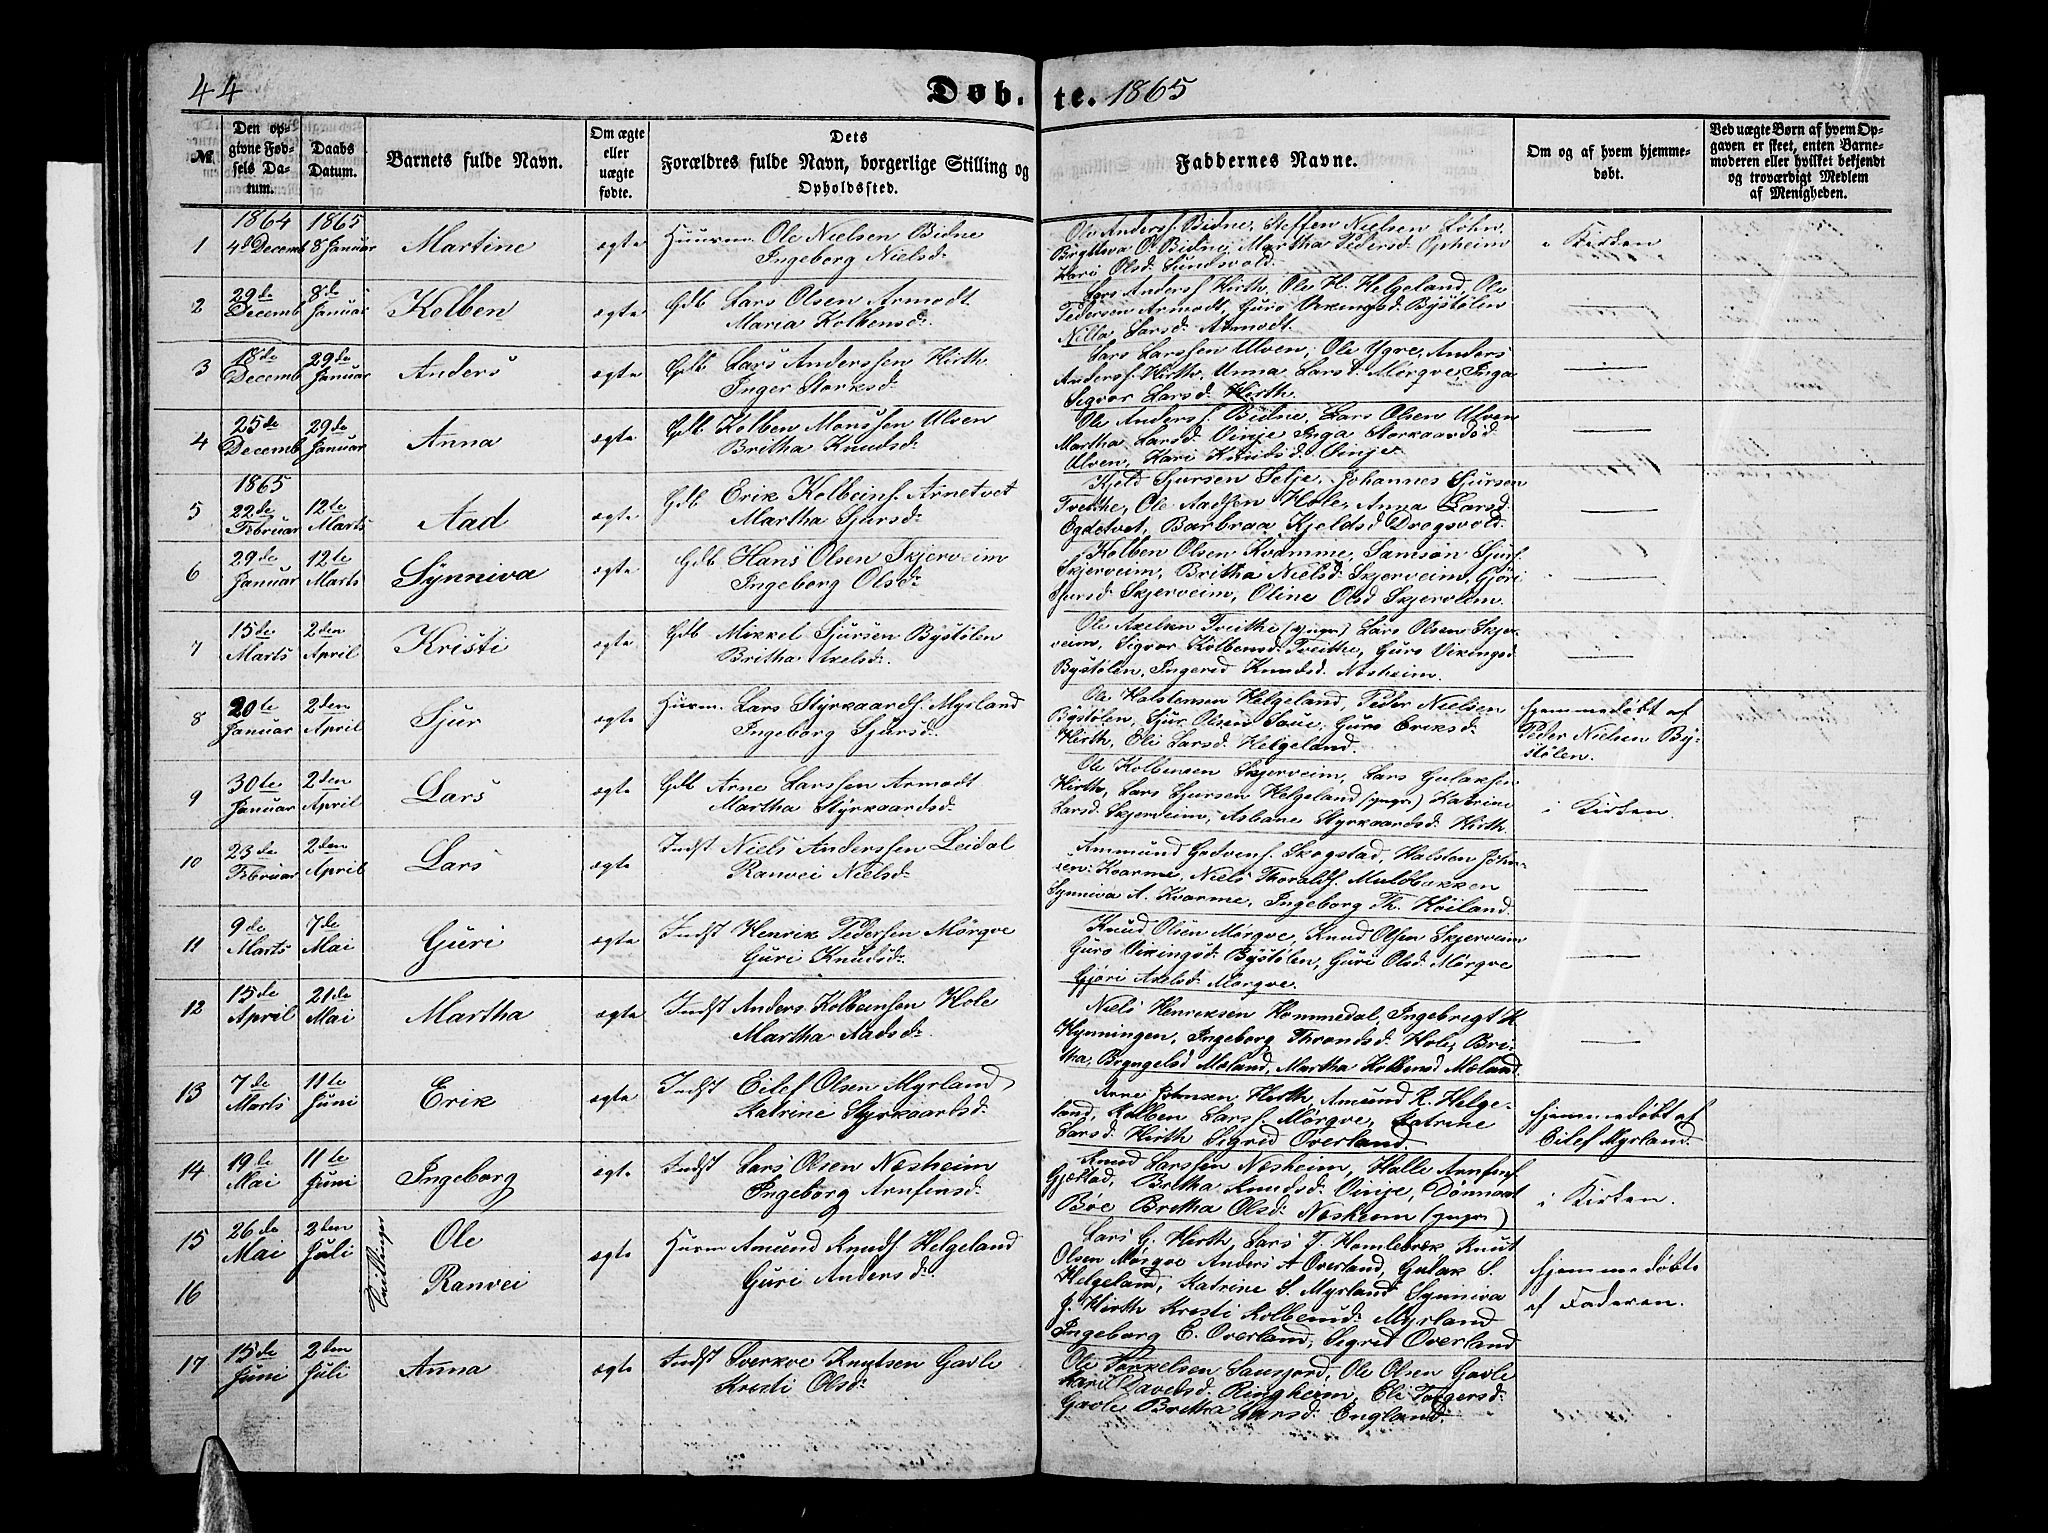 44
Døb.te. 1865
№
Den opgivne Fødsels Datum.
Daabs Datum.
Barnets fulde Navn.
Om ægte eller uægte fødte.
Dets Forældres fulde Navn, borgerlige Stilling og Opholdssted.
Faddernes Navne.
Om og af hvem hjemmedøbt.
Ved uægte Børn af hvem Opgaven er skeet, enten Barnemoderen eller hvilket bekjendt og troværdigt Medlem af Menigheden.
1864 1865
1 4de Decemb 8 Januar Martine ægte Huusm. Ole Nielsen Bidne
Ingeborg Nielsd:
Ole Anders. Bidne, Steffen Nielsen Løhn,
Brytteva O. Bidne, Martha Pedersd: Opheim
Kari Olsd: Sundsvold.
i Kirken
2 29de Decemb 8de Januar Kolben ægte Gdb Lars Olsen Armodt
Maria Kolbensd:
Lars Anders. Hirth, Ole H. Helgeland, Ole
Pedersen Armodt, Guro Vikingsd: Bystølen
Nilla Larsd: Armodt.
3 18de Decemb 29de Januar Anders ægte Gdb Lars Anderssen Hirth
Inger Storksd:
Lars Larssen Ulven, Ole Ygre, Anders
Anders. Hirth, Unna Larsd: Mørqve, Inga
Sigvor Larsd. Hirth.
4 25de Decemb 29de Januar Anna ægte Gdb. Kolben Monssen Ulven
Britha Knudsd:
Ole Anders. Bidne, Lars Olsen Ulven
Martha Larsd: Vinje Inga Storkaardsd:
Ulven, Kari Knudsd: Vinje
1865
5 22de Februar 12te Marts Aad ægte Gdb Erik Kolbeins. Arnetvet
Martha Sjursd:
Kjeld Sjursen Selje, Johannes Sjursen
Treithe, Ole Aadsen Hole, Anna Larsd:
Egdetvet, Barbraa Kjeldsd Dragsvold.
6 29de Januar 12te Marts Synniva ægte Gdb Hans Olsen Skjerveim
Ingeborg Olsd:
Kolben Olsen Kvamme, Samson Sjurs.
Skjerveim, Britha Nielsd: Skjerveim, Gjøri
Sjursd: Skjerveim, Oline Olsd Skjerveim.
7 15de Marts 2den April Kristi ægte Gdb Mikkel Sjursen Bystølen
Britha Axelsd:
Ole Axelsen Treithe (yngr) Lars Olsen Skjer-
veim, Sigvor Kolbensd: Treithe, Guro Vikingsd
Bystølen, Ingerid Knudsd: Næsheim.
8 20te Januar 2den April Sjur ægte Husm. Lars Styrkaards. Myrland
Ingeborg Sjursd:
Ole Halstensen Helgeland, Peder Nielsen
Bystølen, Sjur Olsen Saue, Guro Eriksd:
Hirth, Eli Larsd: Helgeland.
Hjemmedøbt af
Peder Nielsen By-
stølen.
9 30te Januar 2den April Lars ægte Gdb Arne Larssen Armodt
Martha Styrkaardsd:
Ole Kolbensen Skjerveim, Lars Gulaksen
Hirth, Lars Sjursen Helgeland (yngr) Katrine
Larsd: Skjerveim, Asbane Styrkaardsd: Hirth
i Kirken.
10 23de Februar 2den April Lars ægte Indst Niels Anderssen Leidal
Ranvei Nielsd:
Ammund Godvens. Skogstad, Halsten John-
sen Kvarme, Niels Thoralds. Muldbakken
Synniva A. Kvarme, Ingeborg Th. Høiland.
11 9de Marts 7de Mai Guri ægte Indst Henrik Pedersen Mørqve
Guri Knudsd:
Knud Olsen Mørqve, Knud Olsen Skjerveim
Guro Vikingsd: Bystølen, Guri Olsd: Mørqve
Gjøri Axelsd: Mørqve.
12 15de April 21de Mai Martha ægte Indst Anders Kolbensen Hole
Martha Aadsd:
Niels Henriksen Hommedal, Ingebrigt K
Hynningen, Ingeborg Thronsd: Hole, Bri-
tha, Bryngelsd Mæland, Martha Kolbensd Mæland.
13 7de Marts 11te Juni Erik ægte Indst Eilef Olsen Myrland
Katrine Styrkaardsd:
Arne Johnsen Hirth, Amund K. Helge-
land, Kolben Lars. Mørqve, Katrine
Larsd: Hirth Sigrid Overland
Hjemmedøbt af
Eilef Myrland.
14 19de Mai 11te Juni Ingeborg ægte Indst Lars Olsen Næsheim
Ingeborg Arnfinsd:
Knud Larssen Næsheim, Halle Arnfins.
Gjelstad, Britha Knudsd: Vinje,
Bøe Britha Olsd: Næsheim (yngr)
i Kirken.
15 26de Mai 2den Juli Tvillinger Ole ægte Husm Amund Knuds. Helgeland
16 Ranvei Guri Andersd:
Lars G. Hirth, Lars T. Homlebræk Knut
Olsen Mørqve Anders A Overland, Gulak S.
Helgeland, Katrine S. Myrland Synniva
J. Hirth Kristi Kolbensd: Myrland
Ingeborg E. Overland, Sigrit Overland
Hjemmedøbte
af Faderen.
17 15de Juni 2den Juli Anna ægte Indst Sverkve Knutsen Gavle
Kristi Olsd:
Ole Torkelsen Saueford, Ole Olsen Gavle
Kari Davidsd: Ringheim, Eli Torgersd:
Gavle Britha Larsd: England